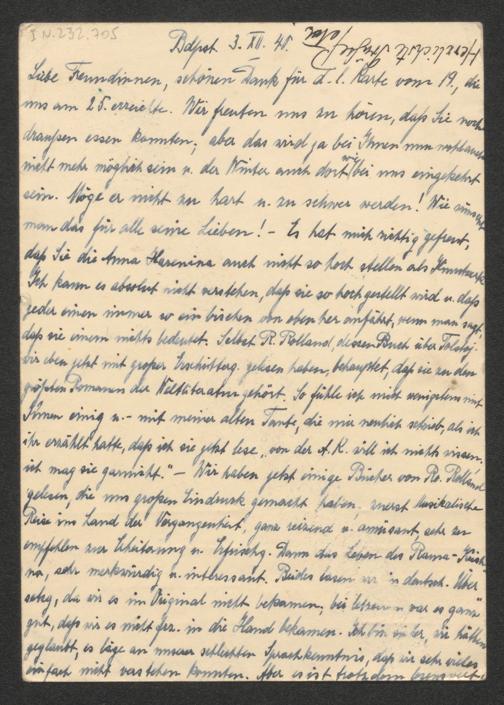 I N. 232.705
Herzlichste Grüße
Bdpst 3. XII. 40.
Liebe Freundinnen, schönen Dank für d. l. Karte vom 19., die
uns am 25. erreichte. Wir freuten uns zu hören, daß Sie noch
draußen essen konnten, aber das wird ja bei Ihnen nun wohl auch
nicht mehr möglich sein u. der Winter auch dort wie bei uns eingekehrt
sein. Möge er nicht zu hart u. zu schwer werden! Wie wünscht
man das für alle seine Lieben! – Es hat mich richtig gefreut,
daß Sie die Anna Karenina auch nicht so hoch stellen als Kunstwerk
Ich kann es absolut nicht verstehen, daß sie so hoch gestellt wird u. daß
jeder einen immer so ein bischen von oben her anfährt, wenn man sagt,
daß sie einem nichts bedeutet. Selbst R. Rolland, dessen Buch über Tolstoj
wir eben jetzt mit großer Erschütterg. gelesen haben, behauptet, daß sie zu den
größten Romanen der Weltliteratur gehört. So fühle ich mich wenigstens mit
Ihnen einig u. – mit meiner alten Tante, die mir neulich schrieb, als ich
ihr erzählt hatte, daß ich sie jetzt lese „von der A. K. will ich nichts wissen,
ich mag sie garnicht." – Wir haben jetzt einige Bücher von Ro. Rolland
gelesen, die uns großen Eindruck gemacht haben, zuerst Musikalische
Reise ins Land der Vergangenheit, ganz reizend u. amüsant, sehr zu
empfehlen zur Erheiterung u. Erfrischg. Dann das Leben des Rama-Krish
na, sehr merkwürdig u. interessant. Beides lasen wir in deutsch. Über
setzg, da wir es im Original nicht bekamen, bei letzerem war es ganz
gut, daß wir es nicht frz. in die Hand bekamen. Ich bin sicher, wir hätten
geglaubt, es läge an unserer schlechten Sprachkenntnis, daß wir sehr vieles
einfach nicht verstehen konnten. Aber es ist trotzdem lesenswert